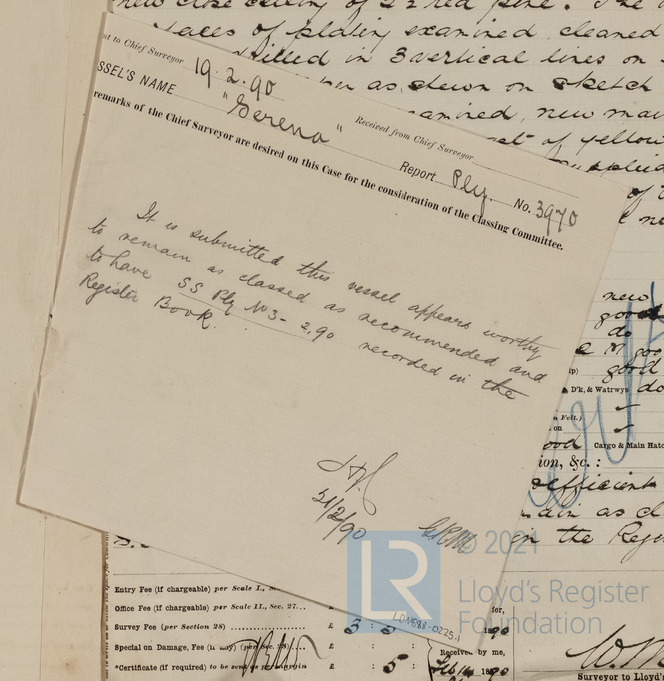 new close ceiling of 2½ red pine. The
faces of plating examined, cleaned
drilled in 3 vertical lines on
as shewn on sketch
amined, new mai
of yellow
supplied
nt to Chief Surveyor 19.2.90
SSEL'S NAME "Serena" Received from Chief Surveyor
Report Ply. No. 3970
remarks of the Chief Surveyor are desired on this Case for the consideration of the Classing Committee.
It is submitted this vessel appears worthy
to remain as classed as recommended and
to have SS Ply No 3 - 2,90 recorded in the
Register Book.
21/2/90
new
good
do
good
D'k, & Watrwys do
n Felt.)
on
ood Cargo & Main Hatc
ion, &c. :
efficient
ain as cl
in the Regi
© 2021
LR
Lloyd's Register
Foundation
LONS88-0225-1
Entry Fee (if chargeable) per Scale I., S
Office Fee (if chargeable) per Scale II., Sec. 27... £
Survey Fee (per Section 28) £ 3 : 5 : 1890
Special on Damage, Fee (if any) (per Sec. 28) £ Received by me,
*Certificate (if required) to be sent as per margin : 5 : Feb 1890
for,
W. M
Surveyor to Lloyd's